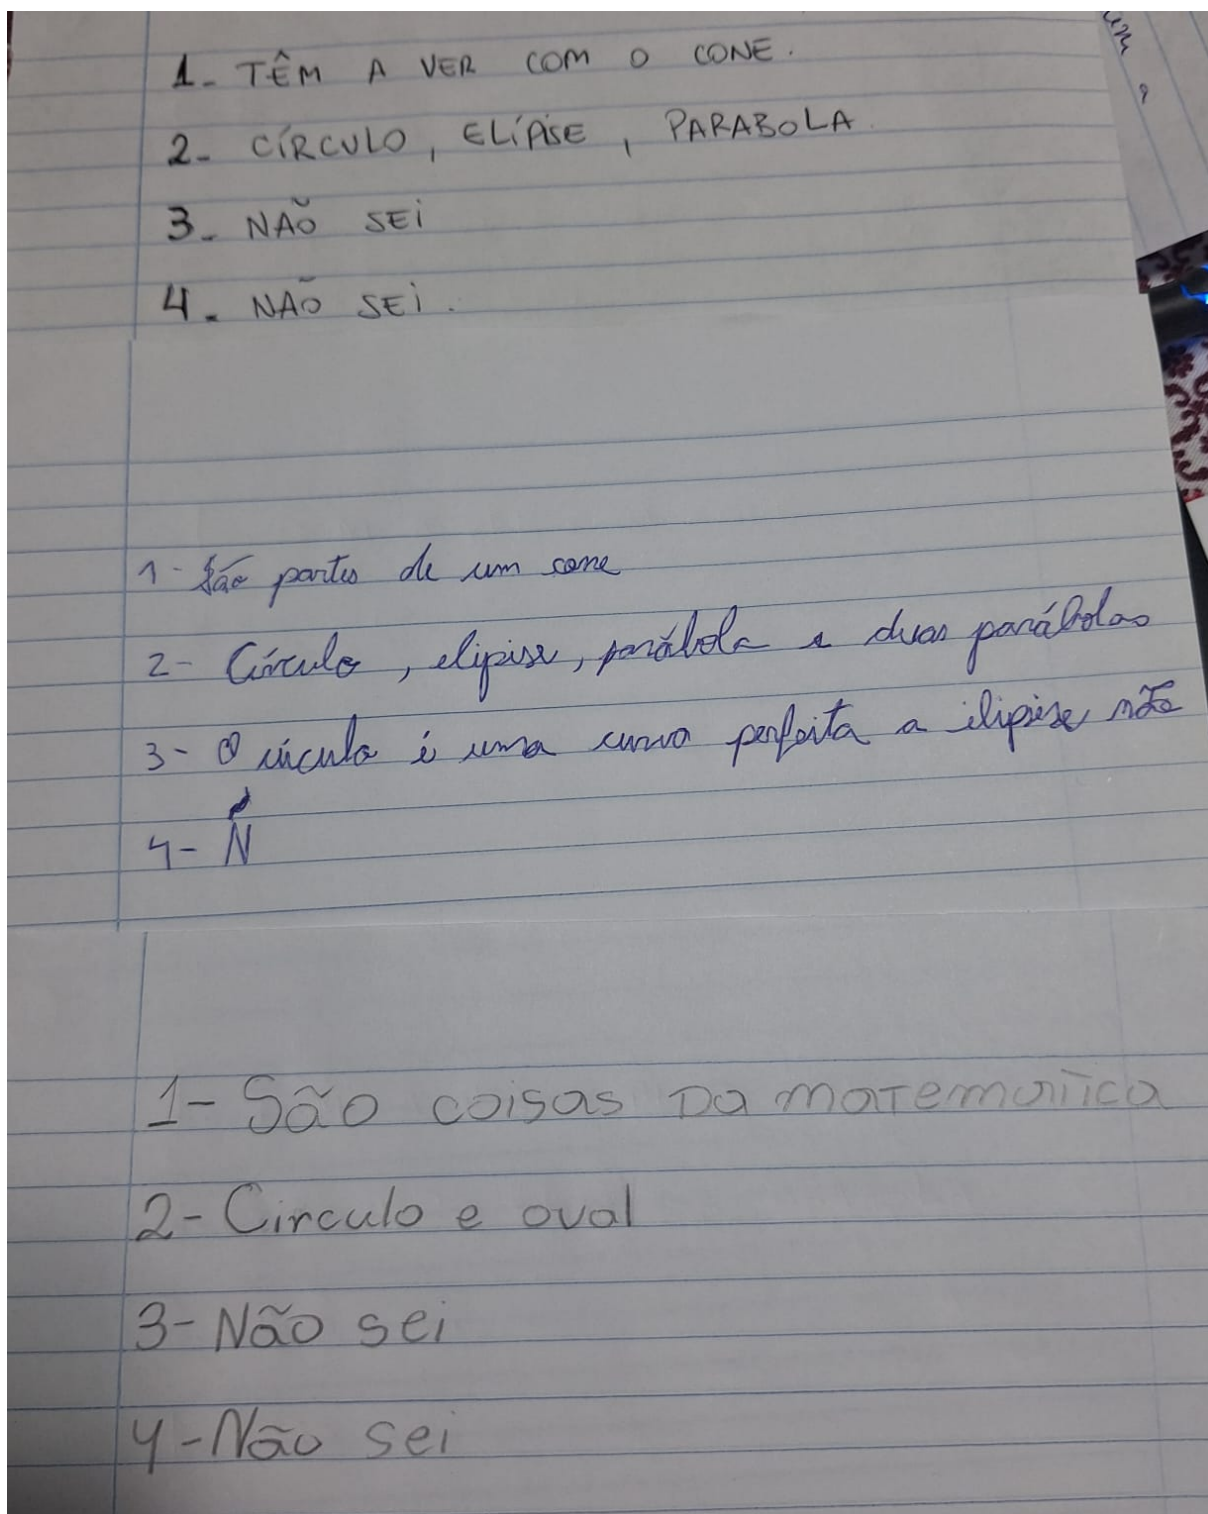 1- TÊM A VER COM O CONE.
2- CÍRCULO, ELÍPISE, PARABOLA.
3- NÃO SEI
4- NÃO SEI.
1- São partes de um cone
2- Círculo, elipise, parábola e duas parábolas
3- O círculo é uma curva perfeita a elipise não
4- N
1- São coisas Da matematica
2- Circulo e oval
3- Não sei
4- Não sei